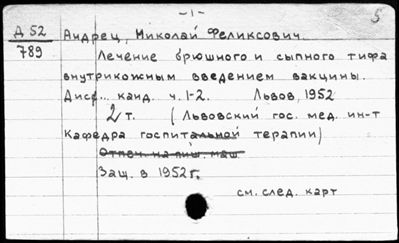 -1-
5
Д 52
789
Андрец, Николай Феликсович.
Лечение брюшного и сыпного тифа
внутрикожным введением вакцины.
Дисс... канд. ч. 1-2. Львов, 1952
2 т. (Львовский гос. мед. ин-т
Кафедра госпитальной терапии)
Отпеч. на пиш. маш.
Защ. в 1952 г.
см. след. карт